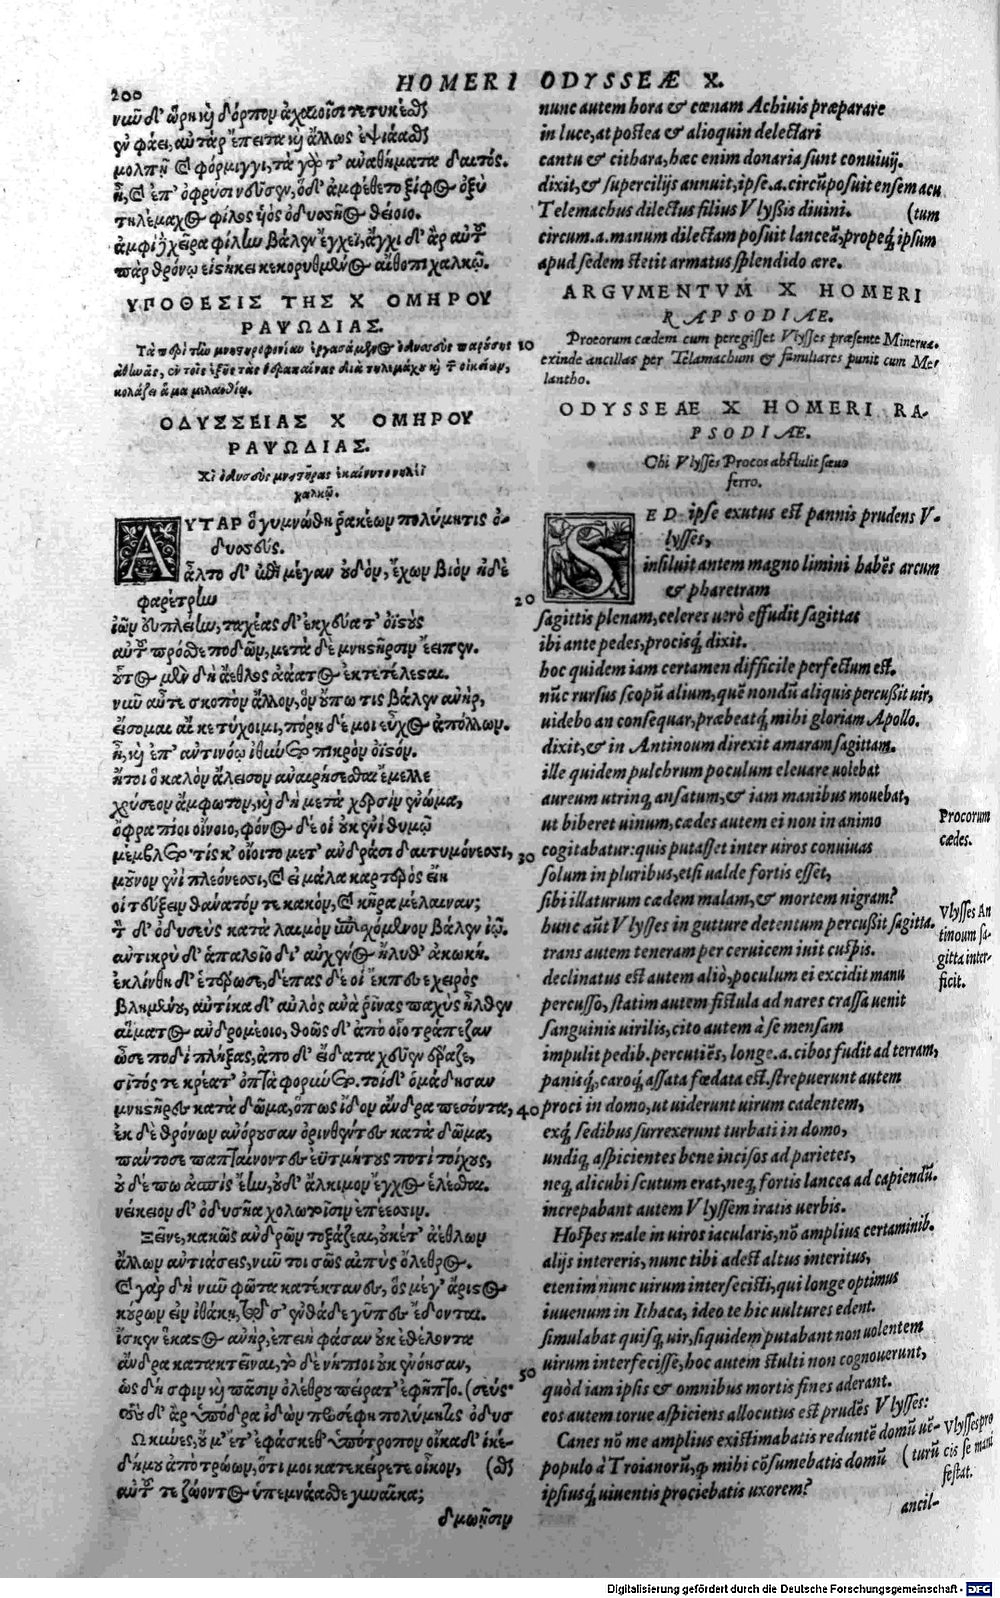 HOMERI ODYSSEÆ X.
200
νῦν δ' ὥρη κỳ δόρπον ἀχαιοῖσι τετυκέσθαι
ἐν φάει, αὐτὰρ ἔπειτα κỳ ἄλλως ἑψιάασθαι
μολπῇ καὶ φόρμιγγι, τὰ γάρ τ' ἀναθήματα δαιτός.
ἦ, καὶ ἐπ' ὀφρύσι νεῦσεν, ὁ δ' ἀμφέθετο ξίφος ὀξὺ
τηλέμαχος φίλος υἱὸς ὀδυσσῆος θείοιο.
ἀμφὶ ἢ χεῖρα φίλην βάλεν ἔγχει, ἄγχι δ' ἂρ αὐτοῦ
πὰρ θρόνῳ εἱστήκει κεκορυθμένος αἴθοπι χαλκῷ.
ΥΠΟΘΕΣΙΣ ΤΗΣ Χ ΟΜΗΡΟΥ
ΡΑΨΩΔΙΑΣ.
Τὰ περὶ τὴν μνηστηροφονίαν ἐργασάμενος ὀδυσσεὺς παρούσης
ἀθηνᾶς, ἐν τοῖς ἑξῆς τὰς θεραπαίνας διὰ τηλεμάχου κỳ τῶν οἰκείων,
κολάζει ἅμα μελανθίῳ.
ΟΔΥΣΣΕΙΑΣ Χ ΟΜΗΡΟΥ
ΡΑΨΩΔΙΑΣ.
Χῖ ὀδυσσεὺς μνηστῆρας ἐκαίνυτο νηλέϊ
χαλκῷ.
ΑΥΤΑΡ ὁ γυμνώθη ῥακέων πολύμητις ὀ-
δυσσεύς.
ἆλτο δ' ἐπὶ μέγαν οὐδὸν, ἔχων βιὸν ἠδὲ
φαρέτρην
ἰῶν ἐμπλείην, ταχέας δ' ἐκχεύατ' ὀϊστοὺς
αὐτοῦ πρόσθε ποδῶν, μετὰ δὲ μνηστῆρσιν ἔειπεν.
οὗτος μὲν δὴ ἄεθλος ἀάατος ἐκτετέλεσται.
νῦν αὖτε σκοπὸν ἄλλον, ὃν οὔπω τις βάλεν ἀνὴρ,
εἴσομαι αἴ κε τύχοιμι, πόρῃ δέ μοι εὖχος ἀπόλλων.
ἦ, κỳ ἐπ' ἀντινόῳ ἰθύνετο πικρὸν ὀϊστόν.
ἤτοι ὁ καλὸν ἄλεισον ἀναιρήσεσθαι ἔμελλε
χρύσεον ἄμφωτον, κỳ δὴ μετὰ χερσὶν ἐνώμα,
ὄφρα πίοι οἴνοιο, φόνος δέ οἱ οὐκ ἐνὶ θυμῷ
μέμβλετο· τίς κ' οἴοιτο μετ' ἀνδράσι δαιτυμόνεσσι,
μοῦνον ἐνὶ πλεόνεσσι, καὶ εἰ μάλα καρτερὸς εἴη
οἷ τεύξειν θάνατόν τε κακὸν, καὶ κῆρα μέλαιναν;
τὸν δ' ὀδυσεὺς κατὰ λαιμὸν ἐπισχόμενον βάλεν ἰῷ.
ἀντικρὺ δ' ἁπαλοῖο δι' αὐχένος ἤλυθ' ἀκωκή.
ἐκλίνθη δ' ἑτέρωσε, δέπας δέ οἱ ἔκπεσε χειρὸς
βλημένου, αὐτίκα δ' αὐλὸς ἀνὰ ῥῖνας παχὺς ἦλθεν
αἵματος ἀνδρομέοιο, θοῶς δ' ἀπὸ οἷο τράπεζαν
ὦσε ποδὶ πλήξας, ἀπὸ δ' εἴδατα χεῦεν ἔραζε,
σῖτός τε κρέατ' ὀπτὰ φορύνετο. τοὶ δ' ὁμάδησαν
μνηστῆρες κατὰ δῶμα, ὅπως ἴδον ἄνδρα πεσόντα,
ἐκ δὲ θρόνων ἀνόρουσαν ὀρινθέντες κατὰ δῶμα,
πάντοσε παπταίνοντες ἐϋτμήτους ποτὶ τοίχους,
οὐδέ πω ἀσπὶς ἔην, οὐδ' ἄλκιμον ἔγχος ἑλέσθαι.
νείκειον δ' ὀδυσῆα χολωτοῖσιν ἐπέεσσιν.
Ξεῖνε, κακῶς ἀνδρῶν τοξάζεαι, οὐκέτ' ἀέθλων
ἄλλων ἀντιάσεις, νῦν τοι σῶς αἰπὺς ὄλεθρος.
καὶ γὰρ δὴ νῦν φῶτα κατέκτανες, ὃς μέγ' ἄριστος
κούρων εἰν ἰθάκῃ, τῷ σ' ἐνθάδε γῦπες ἔδονται.
ἴσκεν ἕκαστος ἀνὴρ, ἐπειὴ φάσαν οὐκ ἐθέλοντα
ἄνδρα κατακτεῖναι, τὸ δὲ νήπιοι οὐκ ἐνόησαν,
ὡς δή σφιν κỳ πᾶσιν ὀλέθρου πείρατ' ἐφῆπτο. (σεύς·
τοὺς δ' ἂρ ὑπόδρα ἰδὼν προσέφη πολύμητις ὀδυσ
Ω κύνες, οὔ μ' ἔτ' ἐφάσκεθ' ὑπότροπον οἴκαδ' ἱκέ-
δήμου ἀπὸ τρώων, ὅτι μοι κατεκείρετε οἶκον, (σθαι
αὐτοῦ τε ζώοντος ὑπεμνάασθε γυναῖκα;
δμωῇσιν
nunc autem hora & cœnam Achiuis præparare
in luce, at postea & alioquin delectari
cantu & cithara, hæc enim donaria sunt conuiuij.
dixit, & supercilijs annuit, ipse .a. circũposuit ensem acu
Telemachus dilectus filius Vlyßis diuini. (tum
circum .a. manum dilectam posuit lanceã, propeq; ipsum
apud sedem stetit armatus splendido ære.
ARGVMENTVM X HOMERI
RAPSODIAE.
10
Procorum cædem cum peregisset Vlysses præsente Minerua.
exinde ancillas per Telamachum & familiares punit cum Me-
lantho.
ODYSSEAE X HOMERI RA-
PSODIAE.
Chi Vlysses Procos abstulit sæuo
ferro.
SED ipse exutus est pannis prudens V-
lysses,
insiluit autem magno limini habẽs arcum
& pharetram
20
sagittis plenam, celeres uerò effudit sagittas
ibi ante pedes, procisq; dixit.
hoc quidem iam certamen difficile perfectum est.
nũc rursus scopũ alium, quẽ nondũ aliquis percußit uir,
uidebo an consequar, præbeatq; mihi gloriam Apollo.
dixit, & in Antinoum direxit amaram sagittam.
ille quidem pulchrum poculum eleuare uolebat
aureum utrinq; ansatum, & iam manibus mouebat,
ut biberet uinum, cædes autem ei non in animo
30
cogitabatur: quis putasset inter uiros conuiuas
solum in pluribus, etsi ualde fortis esset,
sibi illaturum cædem malam, & mortem nigram?
hunc aũt Vlysses in gutture detentum percußit sagitta.
trans autem teneram per ceruicem iuit cuspis.
declinatus est autem aliò, poculum ei excidit manu
percusso, statim autem fistula ad nares crassa uenit
sanguinis uirilis, cito autem à se mensam
impulit pedib. percutiẽs, longe .a. cibos fudit ad terram,
panisq;, caroq; assata fœdata est. strepuerunt autem
40
proci in domo, ut uiderunt uirum cadentem,
exq; sedibus surrexerunt turbati in domo,
undiq; aspicientes bene incisos ad parietes,
neq; alicubi scutum erat, neq; fortis lancea ad capiendũ.
increpabant autem Vlyssem iratis uerbis.
Hospes male in uiros iacularis, nõ amplius certaminib.
alijs intereris, nunc tibi adest altus interitus,
etenim nunc uirum interfecisti, qui longe optimus
iuuenum in Ithaca, ideo te hic uultures edent.
simulabat quisq; uir, siquidem putabant non uolentem
50
uirum interfecisse, hoc autem stulti non cognouerunt,
quòd iam ipsis & omnibus mortis fines aderant.
eos autem torue aspiciens allocutus est prudẽs Vlysses:
Canes nõ me amplius existimabatis reduntẽ domũ uẽ-
populo à Troianorũ, q; mihi cõsumebatis domũ (turũ
ipsiusq; uiuentis prociebatis uxorem?
ancil-
Procorum
cædes.
Vlysses An
tinoum sa-
gitta inter-
ficit.
Vlysses pro
cis se mani
festat.
Digitalisierung gefördert durch die Deutsche Forschungsgemeinschaft - DFG